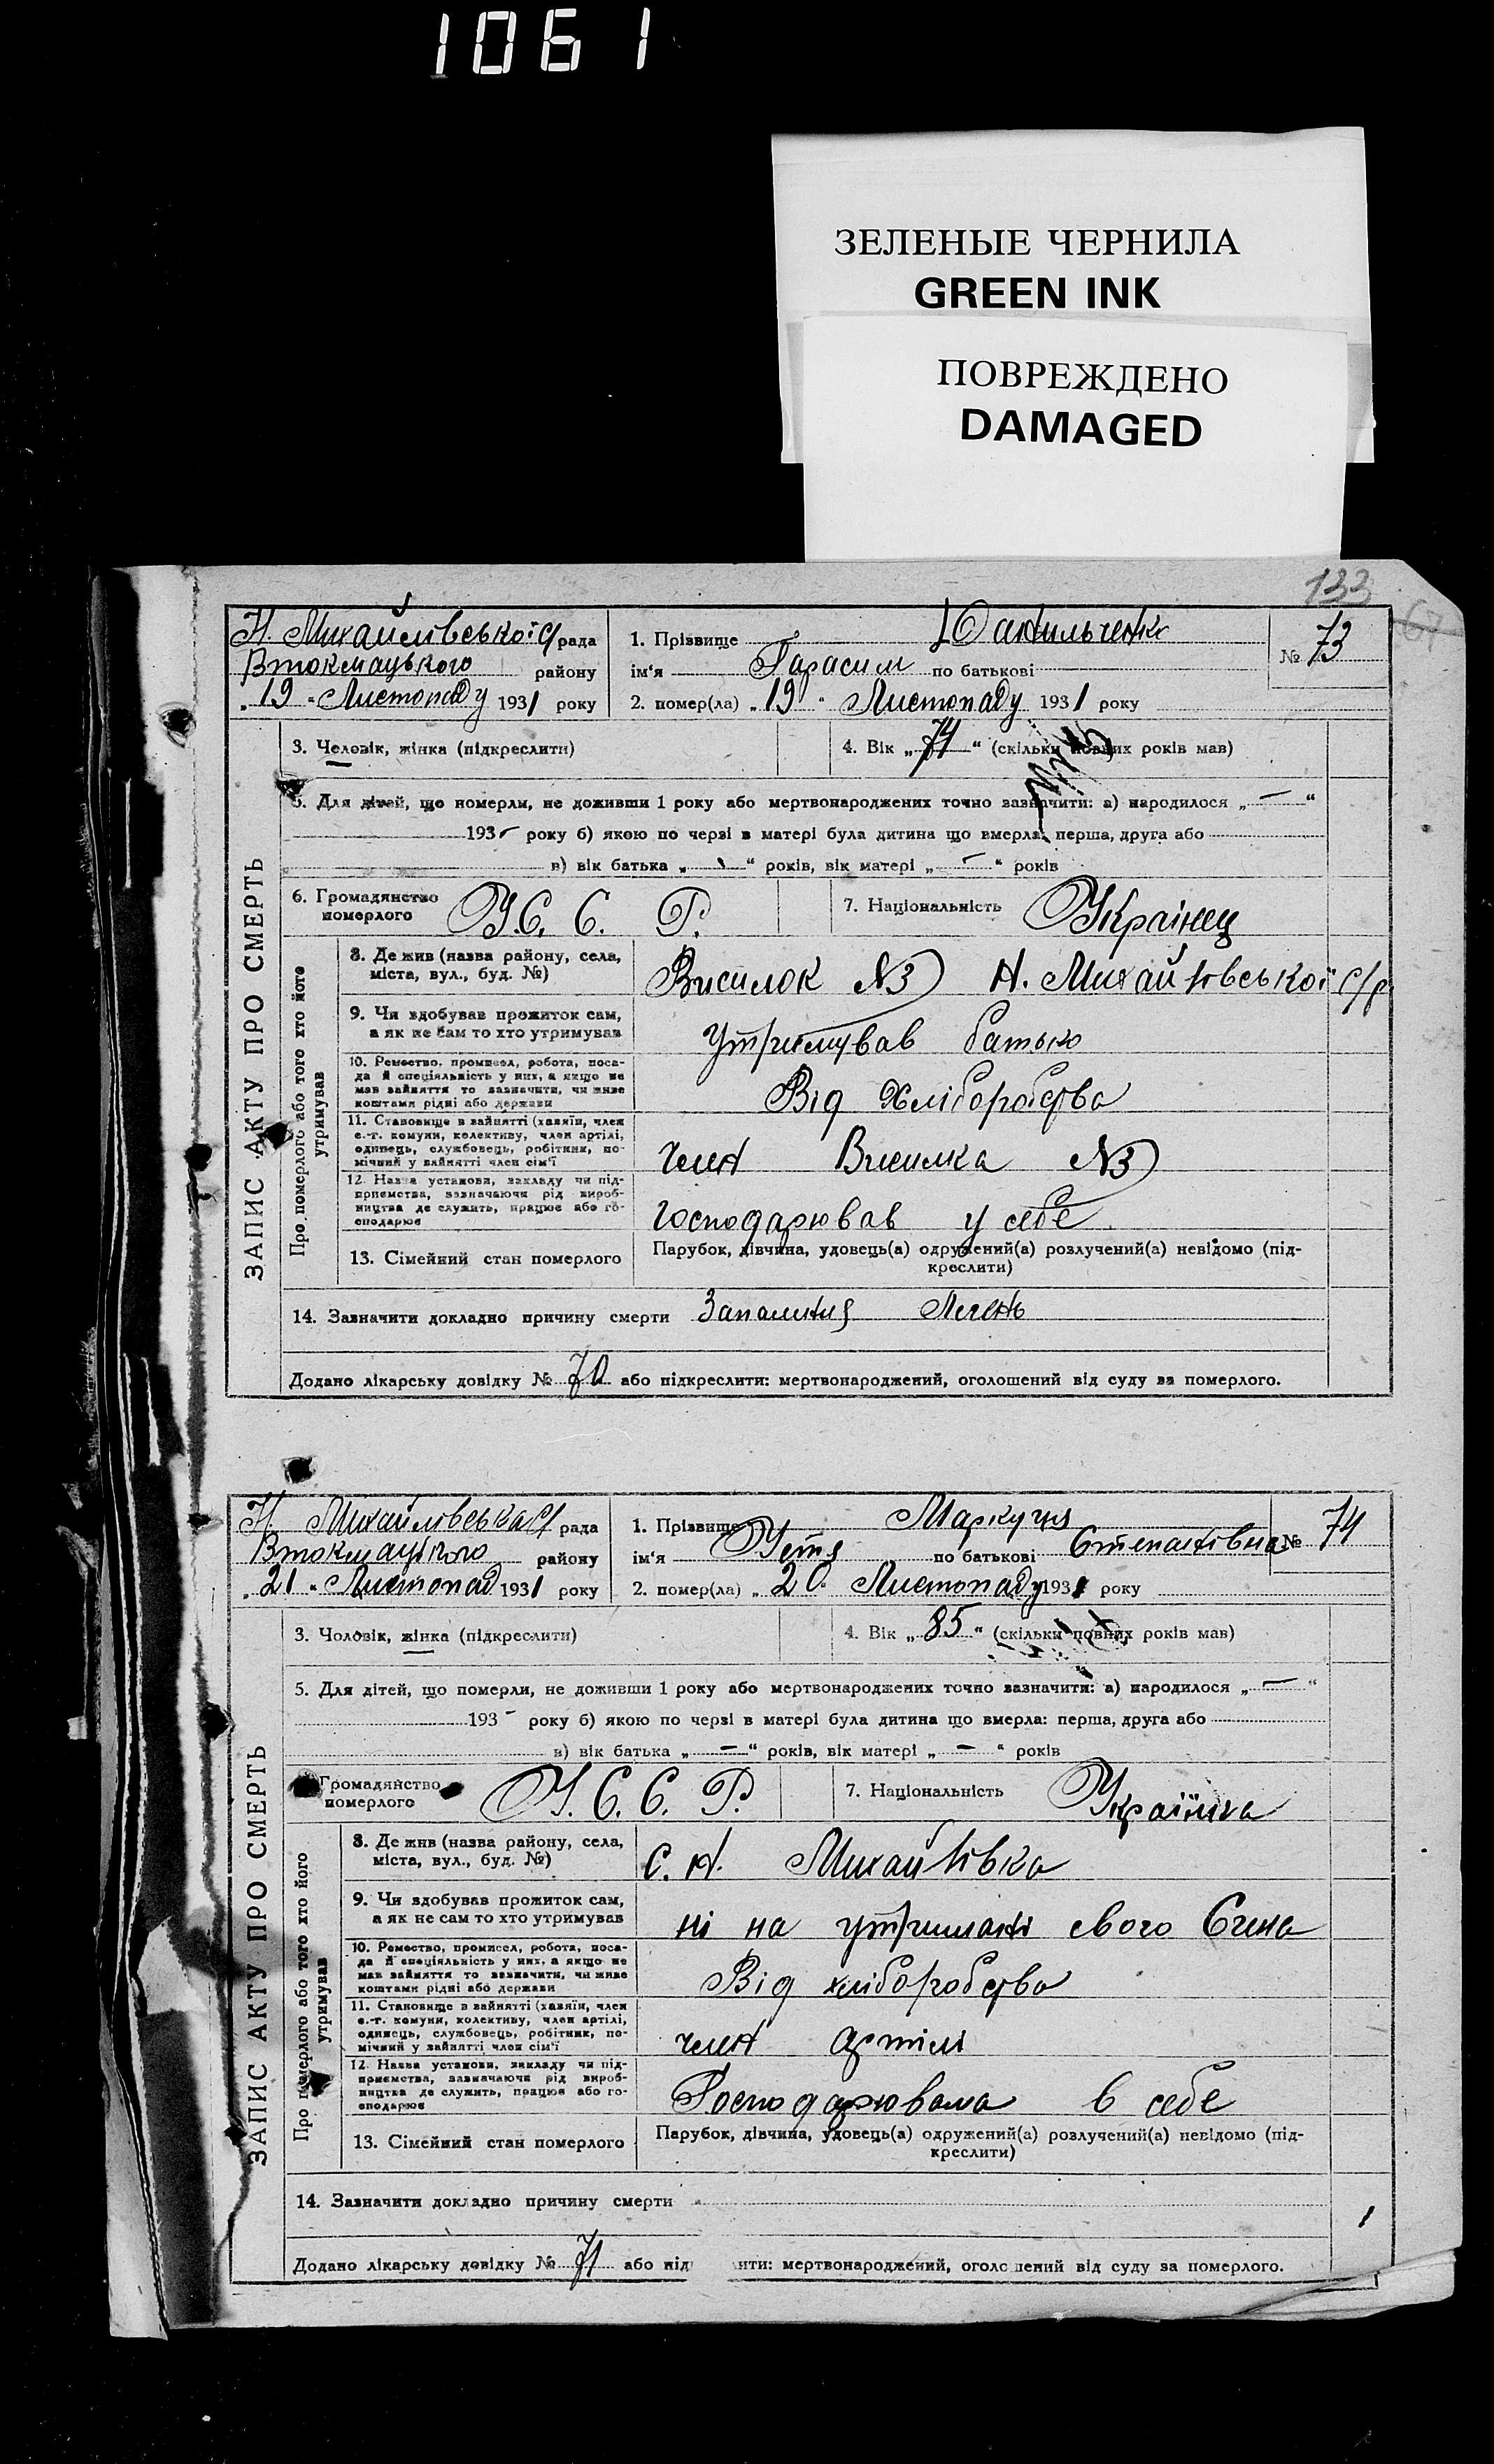 1061
ЗЕЛЕНЫЕ ЧЕРНИЛА
GREEN INK
ПОВРЕЖДЕНО
DAMAGED
133
67
Н. Михайлівської с/рада
Втокмацького району
„19“ Листопаду 1931 року
1. Прізвище Данильченко
ім‘я Гарасим по батькові
№ 73
2. помер(ла) „19“ Листопаду 1931 року
3. Чоловік, жінка (підкреслити)
4. Вік „74“ (скільки повних років мав)
5. Для дітей, що померли, не доживши 1 року або мертвонароджених точно зазначити: а) народилося „—“
193– року б) якою по черзі в матері була дитина що вмерла: перша, друга або
в) вік батька „–“ років, вік матері „–“ років
6. Громадянство
померлого
У.С.С.Р.
7. Національність Українец
ЗАПИС АКТУ ПРО СМЕРТЬ
Про померлого або того хто його
утримував
8. Де жив (назва району, села,
міста, вул., буд. №)
Висилок №3 Н. Михайлівської с/р
9. Чи здобував прожиток сам,
а як не сам то хто утримував
Утримував батько
10. Ремество, промисел, робота, поса-
да й спеціяльність у них, а якщо не
мав зайняття то зазначити, чи живе
коштами рідні або держави
Від хліборобства
11. Становище в зайнятті (хазяїн, член
с.-г. комуни, колективу, член артілі,
одинець, службовець, робітник, по-
мічний у зайнятті член сім‘ї
член Висилка №3
12. Назва установи, закладу чи під-
приємства, зазначаючи рід вироб-
ництва де служить, працює або го-
сподарює
Господарював у себе
13. Сімейний стан померлого
Парубок, дівчина, удовець(а) одружений(а) розлучений(а) невідомо (під-
креслити)
14. Зазначити докладно причину смерти Запалиния Легень
Додано лікарську довідку № 70 або підкреслити: мертвонароджений, оголошений від суду за померлого.
Н. Михайлівська с/рада
Втокмацького району
„21“ Листопад 1931 року
1. Прізвище
ім‘я по батькові Степанівна
№ 74
2. помер(ла) „20“ Листопаду 1931 року
3. Чоловік, жінка (підкреслити)
4. Вік „85“ (скільки повних років мав)
5. Для дітей, що померли, не доживши 1 року або мертвонароджених точно зазначити: а) народилося „—“
193– року б) якою по черзі в матері була дитина що вмерла: перша, друга або
в) вік батька „—“ років, вік матері „—“ років
Громадянство
померлого
У.С.С.Р.
7. Національність Українка
ЗАПИС АКТУ ПРО СМЕРТЬ
Про померлого або того хто його
утримував
8. Де жив (назва району, села,
міста, вул., буд. №)
С. Н. Михайлівка
9. Чи здобував прожиток сам,
а як не сам то хто утримував
ні на утримані свого Сина
10. Ремество, промисел, робота, поса-
да й спеціяльність у них, а якщо не
мав зайняття то зазначити, чи живе
коштами рідні або держави
Від хліборобства
11. Становище в зайнятті (хазяїн, член
с.-г. комуни, колективу, член артілі,
одинець, службовець, робітник, по-
мічний у зайнятті член сім‘ї
член артілі
12. Назва установи, закладу чи під-
приємства, зазначаючи рід вироб-
ництва де служить, працює або го-
сподарює
Господарювала в себе
13. Сімейний стан померлого
Парубок, дівчина, удовець(а) одружений(а) розлучений(а) невідомо (під-
креслити)
14. Зазначити докладно причину смерти
Додано лікарську довідку № 71 або під нти: мертвонароджений, оголошений від суду за померлого.